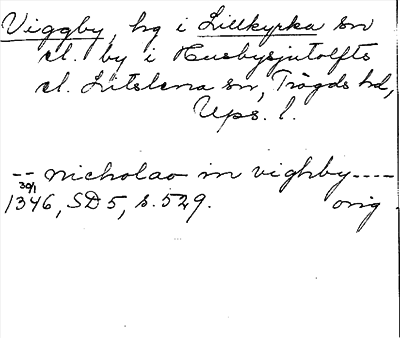 Viggby, hg i Lillkyrka sn
el. by i Husbysjutolfts
el. Litslena sn, Trögds hd,
Ups. l.
-- nicholao in vighby ----
30/1
1346, SD 5, s. 529. orig.